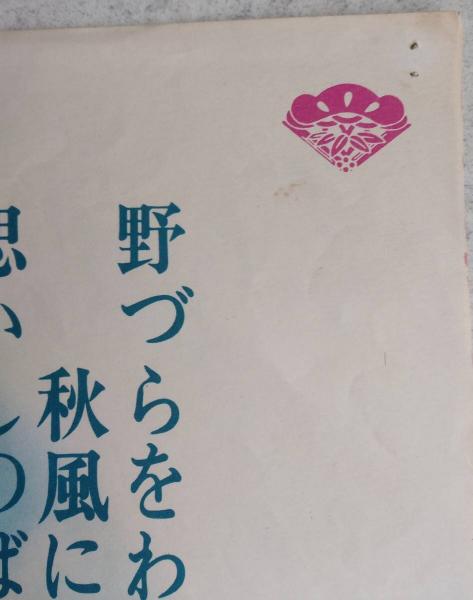 野づらをわ
秋風に
思い しのば